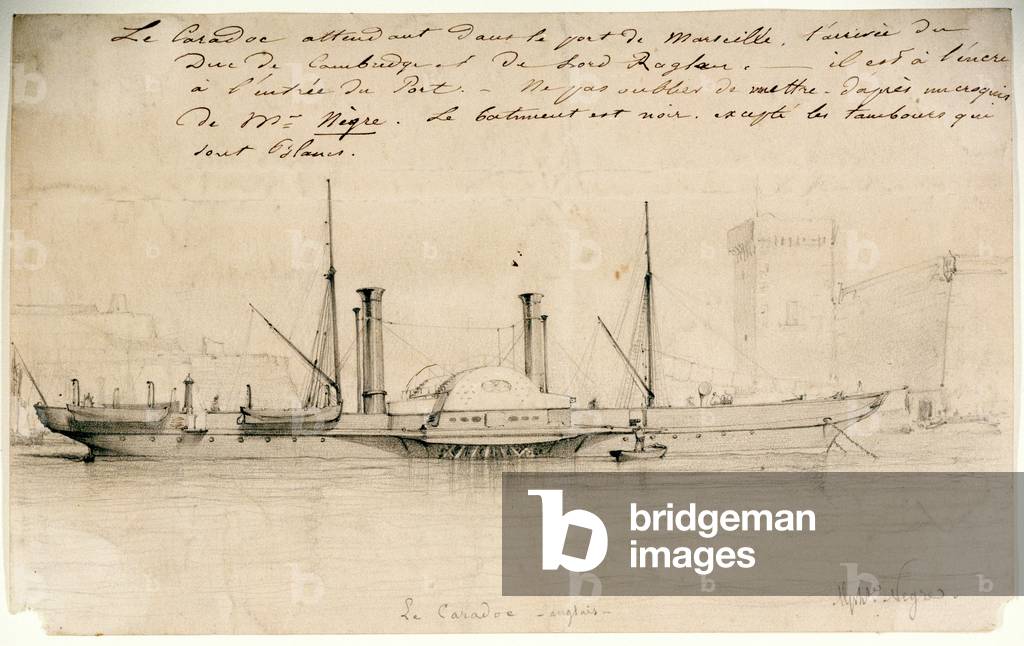 Le Caradoc attendant dans le port de Marseille, l'arrivée du
Duc de Cambridge et de Lord Raglan. — il est à l'encre
à l'entrée du Port. - Ne pas oublier de mettre - d'après un croquis
de Mr Nègre. Le batiment est noir. excepté les tambours qui
sont blancs.
b
bridgeman
images
Le Caradoc - anglais -
Nègre